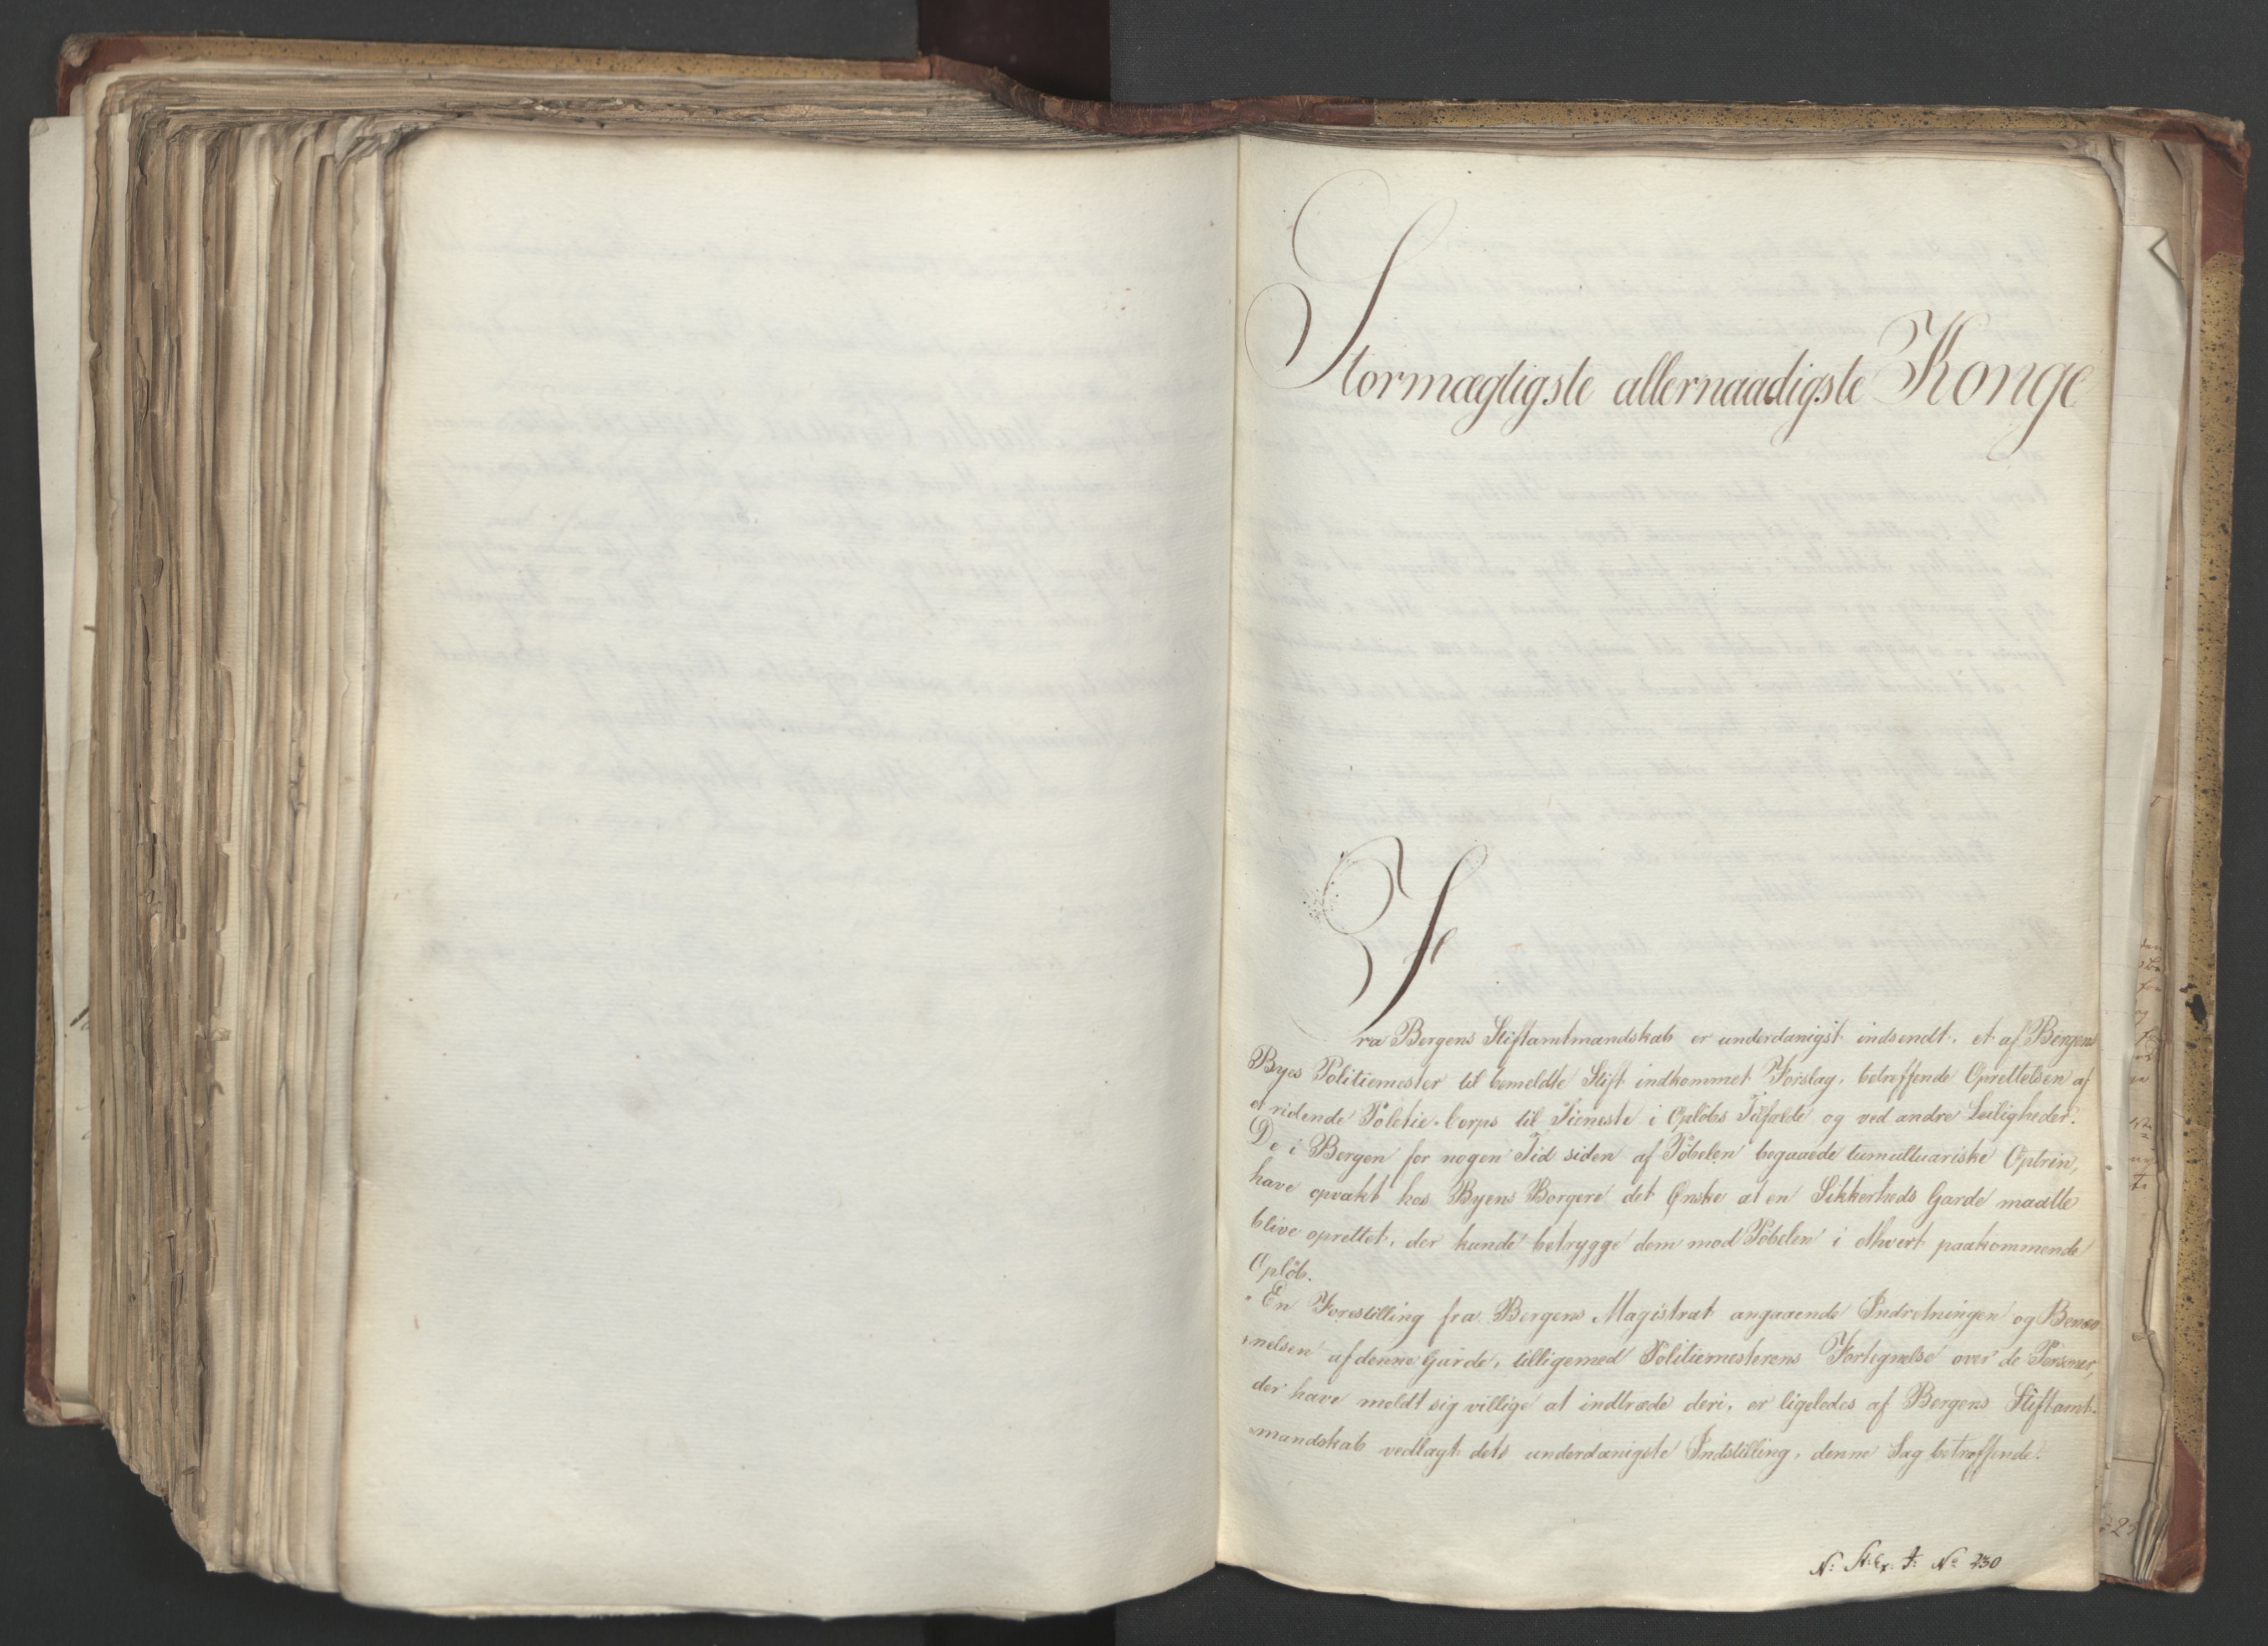 Stormægtigste allernaadigste Konge
Fra Bergens Stiftamtmandskab er underdanigst indsendt, et af Bergens
Byes Politiemester til bemeldte Stift indkommet Forslag, betreffende Oprettelsen af
et ridende Poletie-Corps til Tieneste i Opløbs Tilfælde og ved andre Leiligheder.
De i Bergen for nogen Tid siden af Pöbelen begaaede tumultuariske Optrin,
have opvakt hos Byens Borgere det Ønske at en Sikkerheds Garde maatte
blive oprettet, der kunde betrygge dem mod Pöbelen i ethvert paakommende
Opløb.
En Forestilling fra Bergens Magistrat angaaende Indretningen og Benæv
nelsen af denne Garde, tilligemed Politiemesterens Fortegnelse over de Personer,
der have meldt sig villige at indtræde deri, er ligeledes af Bergens Stiftamt-
mandskab vedlagt dets underdanigste Indstilling, denne Sag betræffende.
N: St: Ex. J: No 230